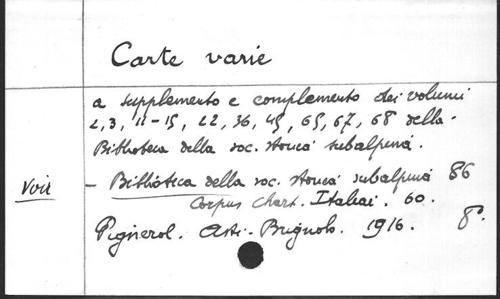 Carte varie
a supplemento e complemento dei volumi
2, 3, 11-15, 22, 36, 45, 65, 67, 68 della
Biblioteca della soc. storica subalpina.
Voir - Biblioteca della soc. storica subalpina 86
Corpus Chart. Italiae. 60.
Pignerol. Asti-Brignolo. 1916. 8°.